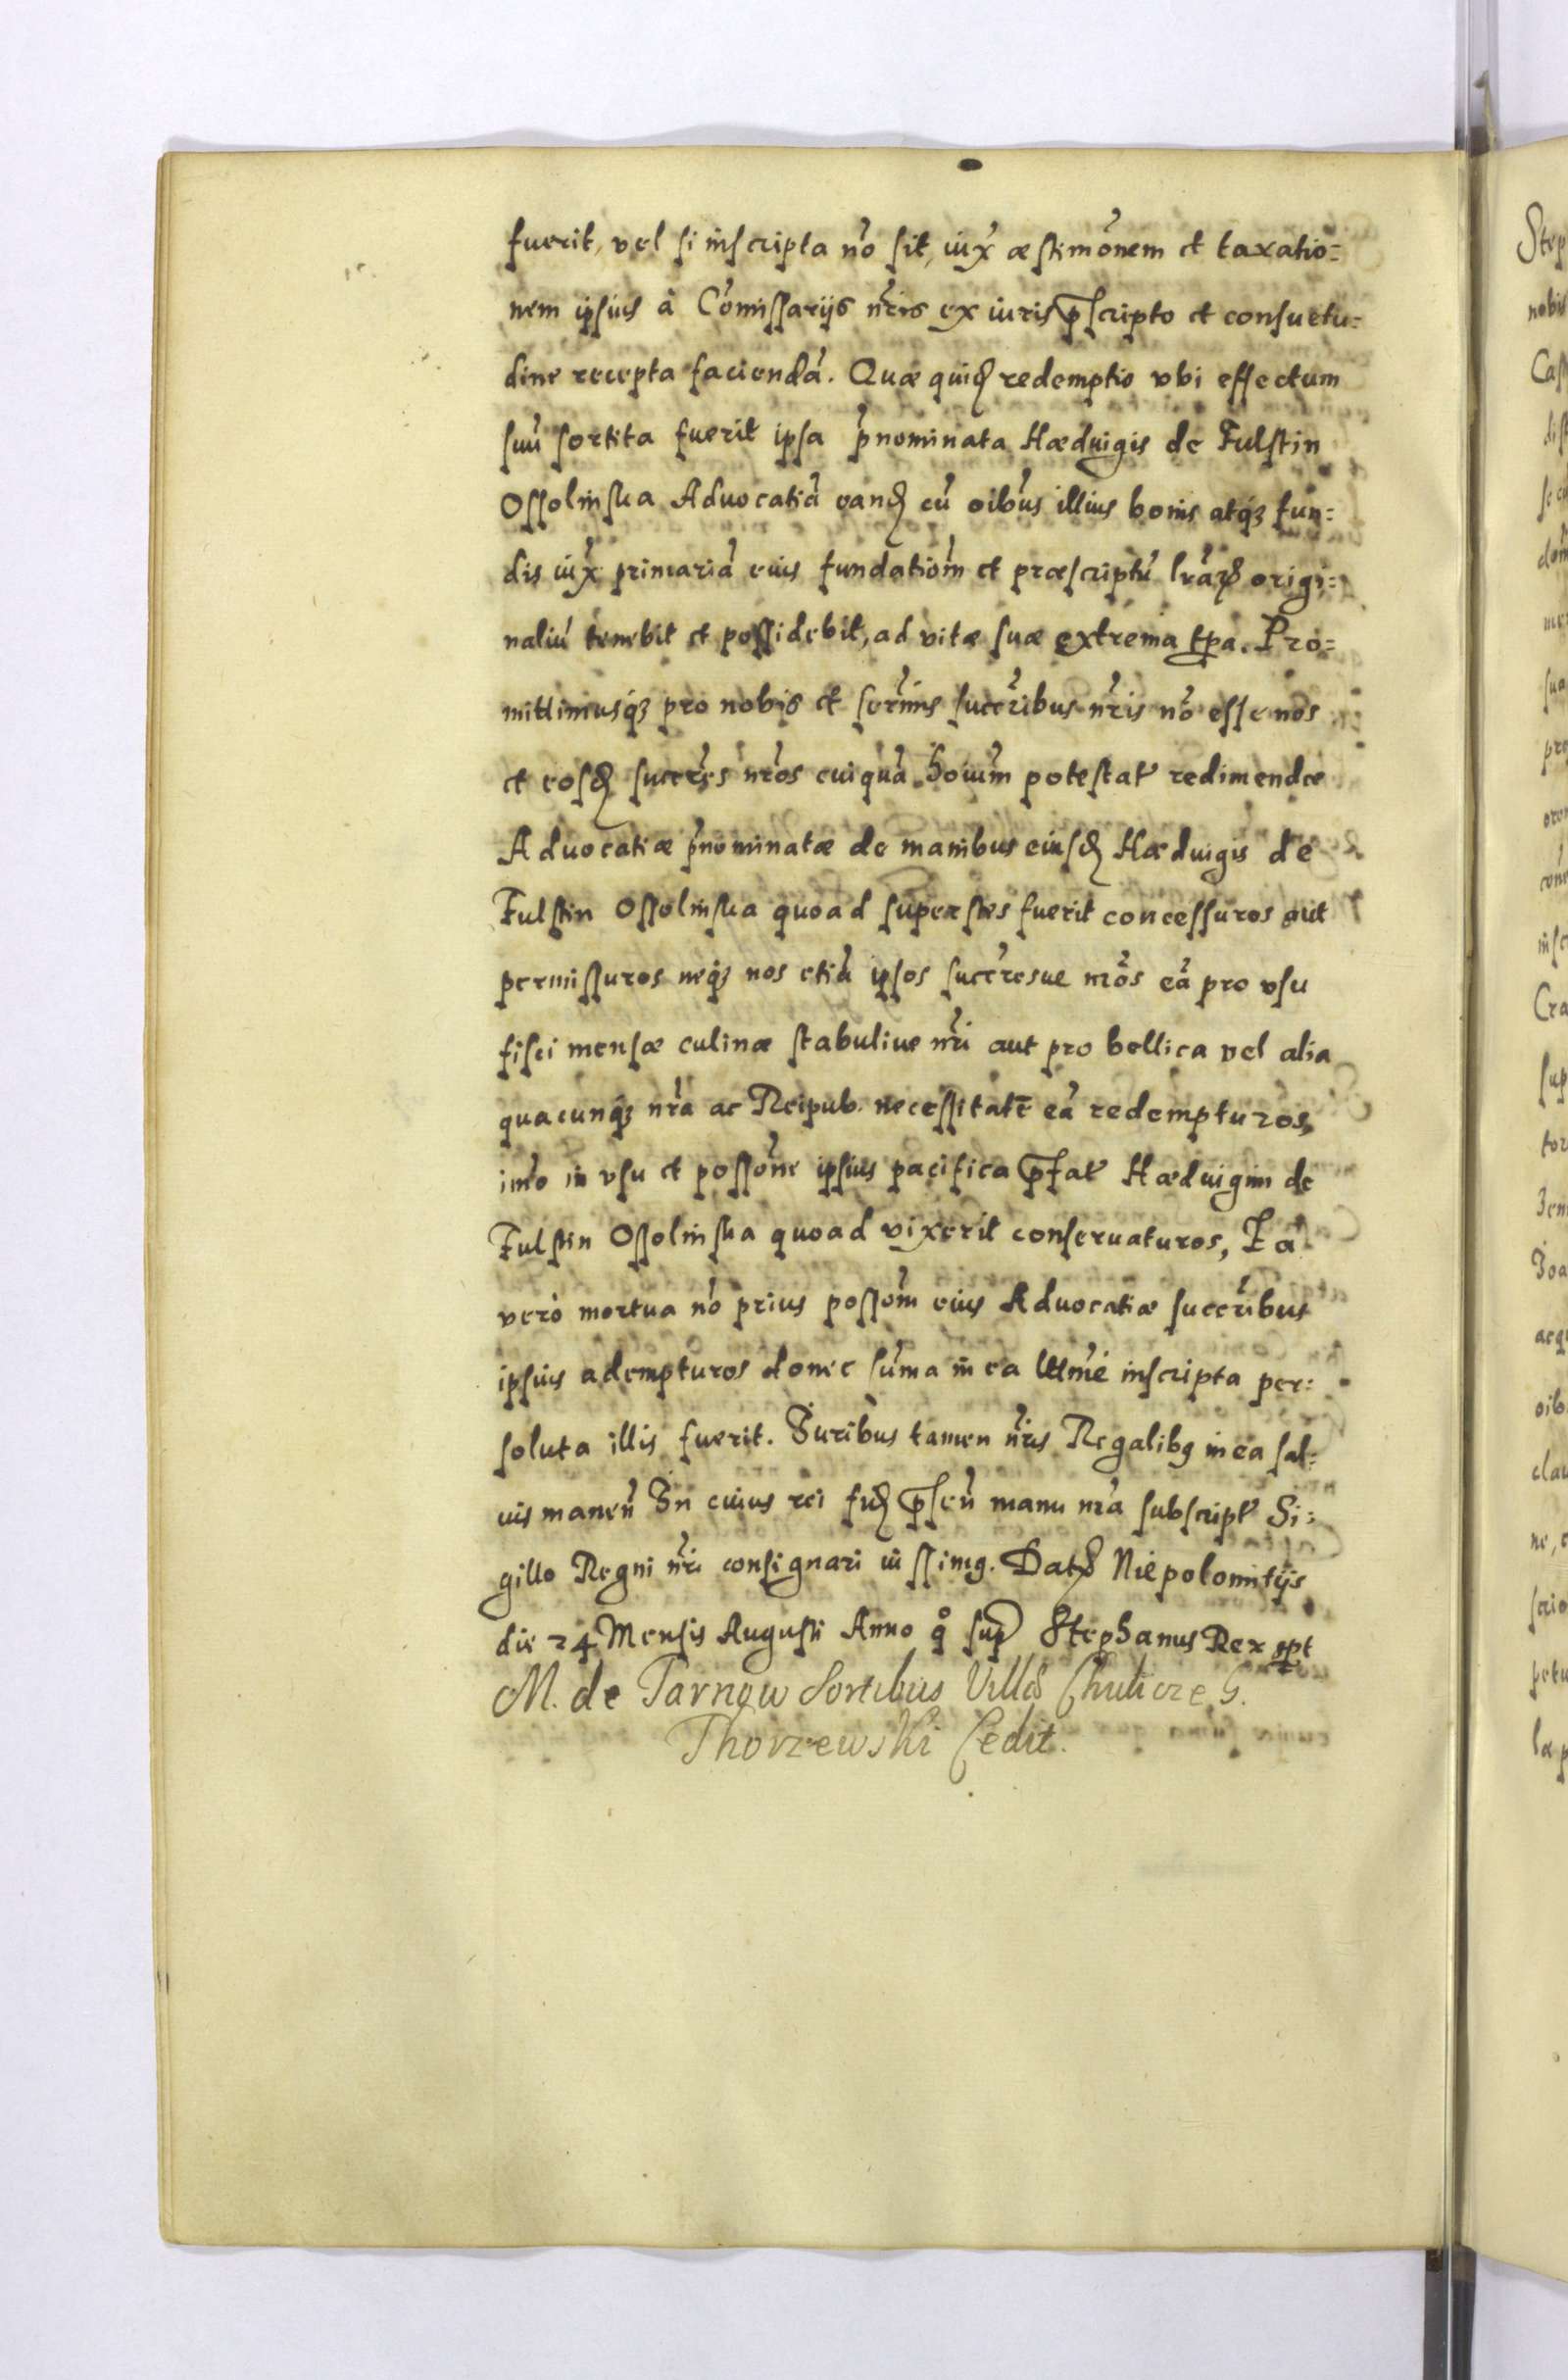 fuerit, vel si inscripta nõ sit, iux̃ æstimõnem et taxatio=
nem ipsius à Cõmissarijs nr̃is ex iuris p̱scripto et consuetu=
dine recepta faciendã. Quæ quid redemptio vbi effectum
suũ sortita fuerit ipsa p̃nominata Hæduigis de Fulstin
Ossolinska Aduocatiã eand cũ oĩbus illius bonis atq́ꝫ fun=
dis iux̃ primariã eius fundatiõm et præscriptũ lr̃aꝝ origi=
naliũ tenebit et possidebit, ad vitæ suæ extrema tp̱a. Pro=
mittimusq́ꝫ pro nobis et ser̃mis succr̃ibus nr̃is nõ esse nos
et eosd succr̃es nr̃os cuiquã hoĩum potestat̃ redimendæ
Aduocatiæ p̃nominatæ de manibus eiusd Hæduigis de
Fulstin Ossolinska quoad superstes fuerit concessuros aut
permissuros neq́ꝫ nos etiã ipsos succr̃esue nr̃os eã pro vsu
fisci mensæ culinæ stabuliue nr̃i aut pro bellica vel alia
quacunq́ꝫ nr̃a ac Reipub. necessitate eã redempturos,
imò in vsu et possõne ipsius pacifica p̱fat̃ Hæduigim de
Fulstin Ossolinska quoad vixerit conseruaturos, Ea
verò mortua nõ prius possõm eius Aduocatiæ succr̃ibus
ipsius adempturos donec sũma in ea ltt̃me inscripta per=
soluta illis fuerit. Juribus tamen nr̃is Regalibꝫ in ea sal=
uis manen̄ In cuius rei fid p̱sen̄ manu nr̃a subscript̃ Si=
gillo Regni nr̃i consignari iussimꝫ. Datꝝ Niepolomitijs
die 24 Mensis Augusti Anno q̊ sup̱ Stephanus Rex spt
M. de Tarnow Sortibus Villæ Chulicze G.
Thorzewski Cedit.